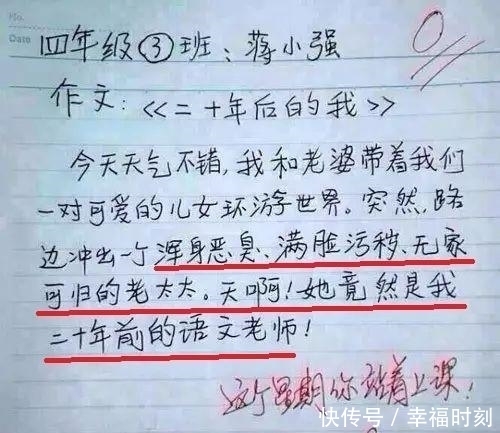 No.
Date
四年级③班：蒋小强
0
作文：《二十年后的我》
今天天气不错，我和老婆带着我们
一对可爱的儿女环游世界。突然，路
边冲出一个浑身恶臭、满脸污秽、无家
可归的老太太。天啊！她竟然是我
二十年前的语文老师！
这个星期你站着上课！
快传号／幸福时刻